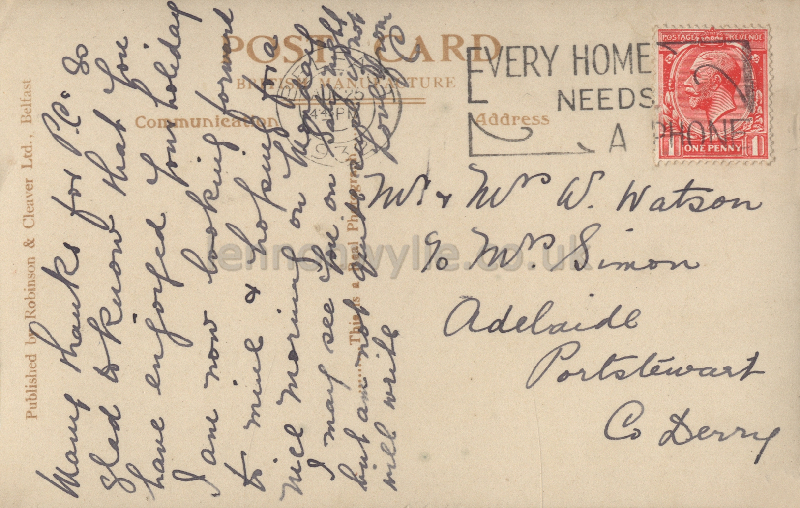 POST CARD
BRITISH MANUFACTURE
Communication
Address
Published by Robinson & Cleaver Ltd., Belfast
This is a Real Photograph
EVERY HOME
NEEDS
A PHONE
POSTAGE REVENUE
1 ONE PENNY 1
Many thanks for P.C. So
glad to know that you
have enjoyed your holiday
I am now looking forward
to mine & hoping for a
nice morning on Monday
I may see you on Sat night
but am not quite sure if not
will write
Mr & Mrs W. Watson
c/o Mrs Simon
Adelaide
Portstewart
Co Derry
lennonwylie.co.uk